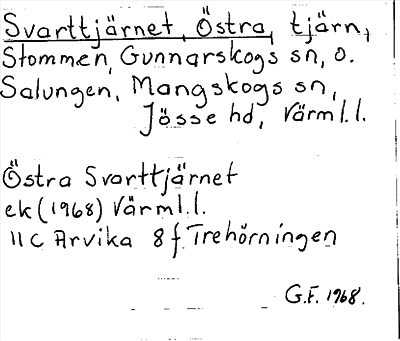 Svarttjärnet, Östra, tjärn,
Stommen, Gunnarskogs sn, o.
Salungen, Mangskogs sn,
Jösse hd, Värml.l.
Östra Svarttjärnet
ek (1968) Värml.l.
11 C Arvika 8 f Trehörningen
G.F. 1968.